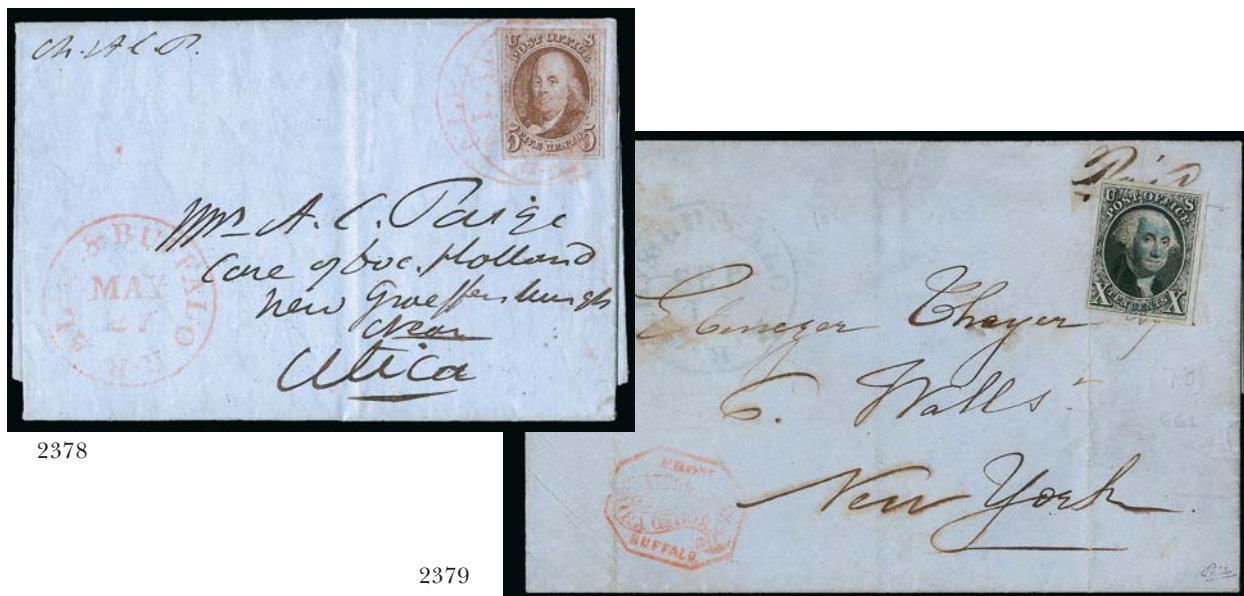 U S
POST OFFICE
5 FIVE CENTS 5
& BUFFALO R.R.
MAY
27
Mrs A. C. Paige
Care of Doc. Holland
New Graeffenburgh
Near
Utica
2378
Paid
U S
POST OFFICE
X TEN CENTS X
Ebenezer Thayer
6. Wall St
New York
FROM
BUFFALO
2379